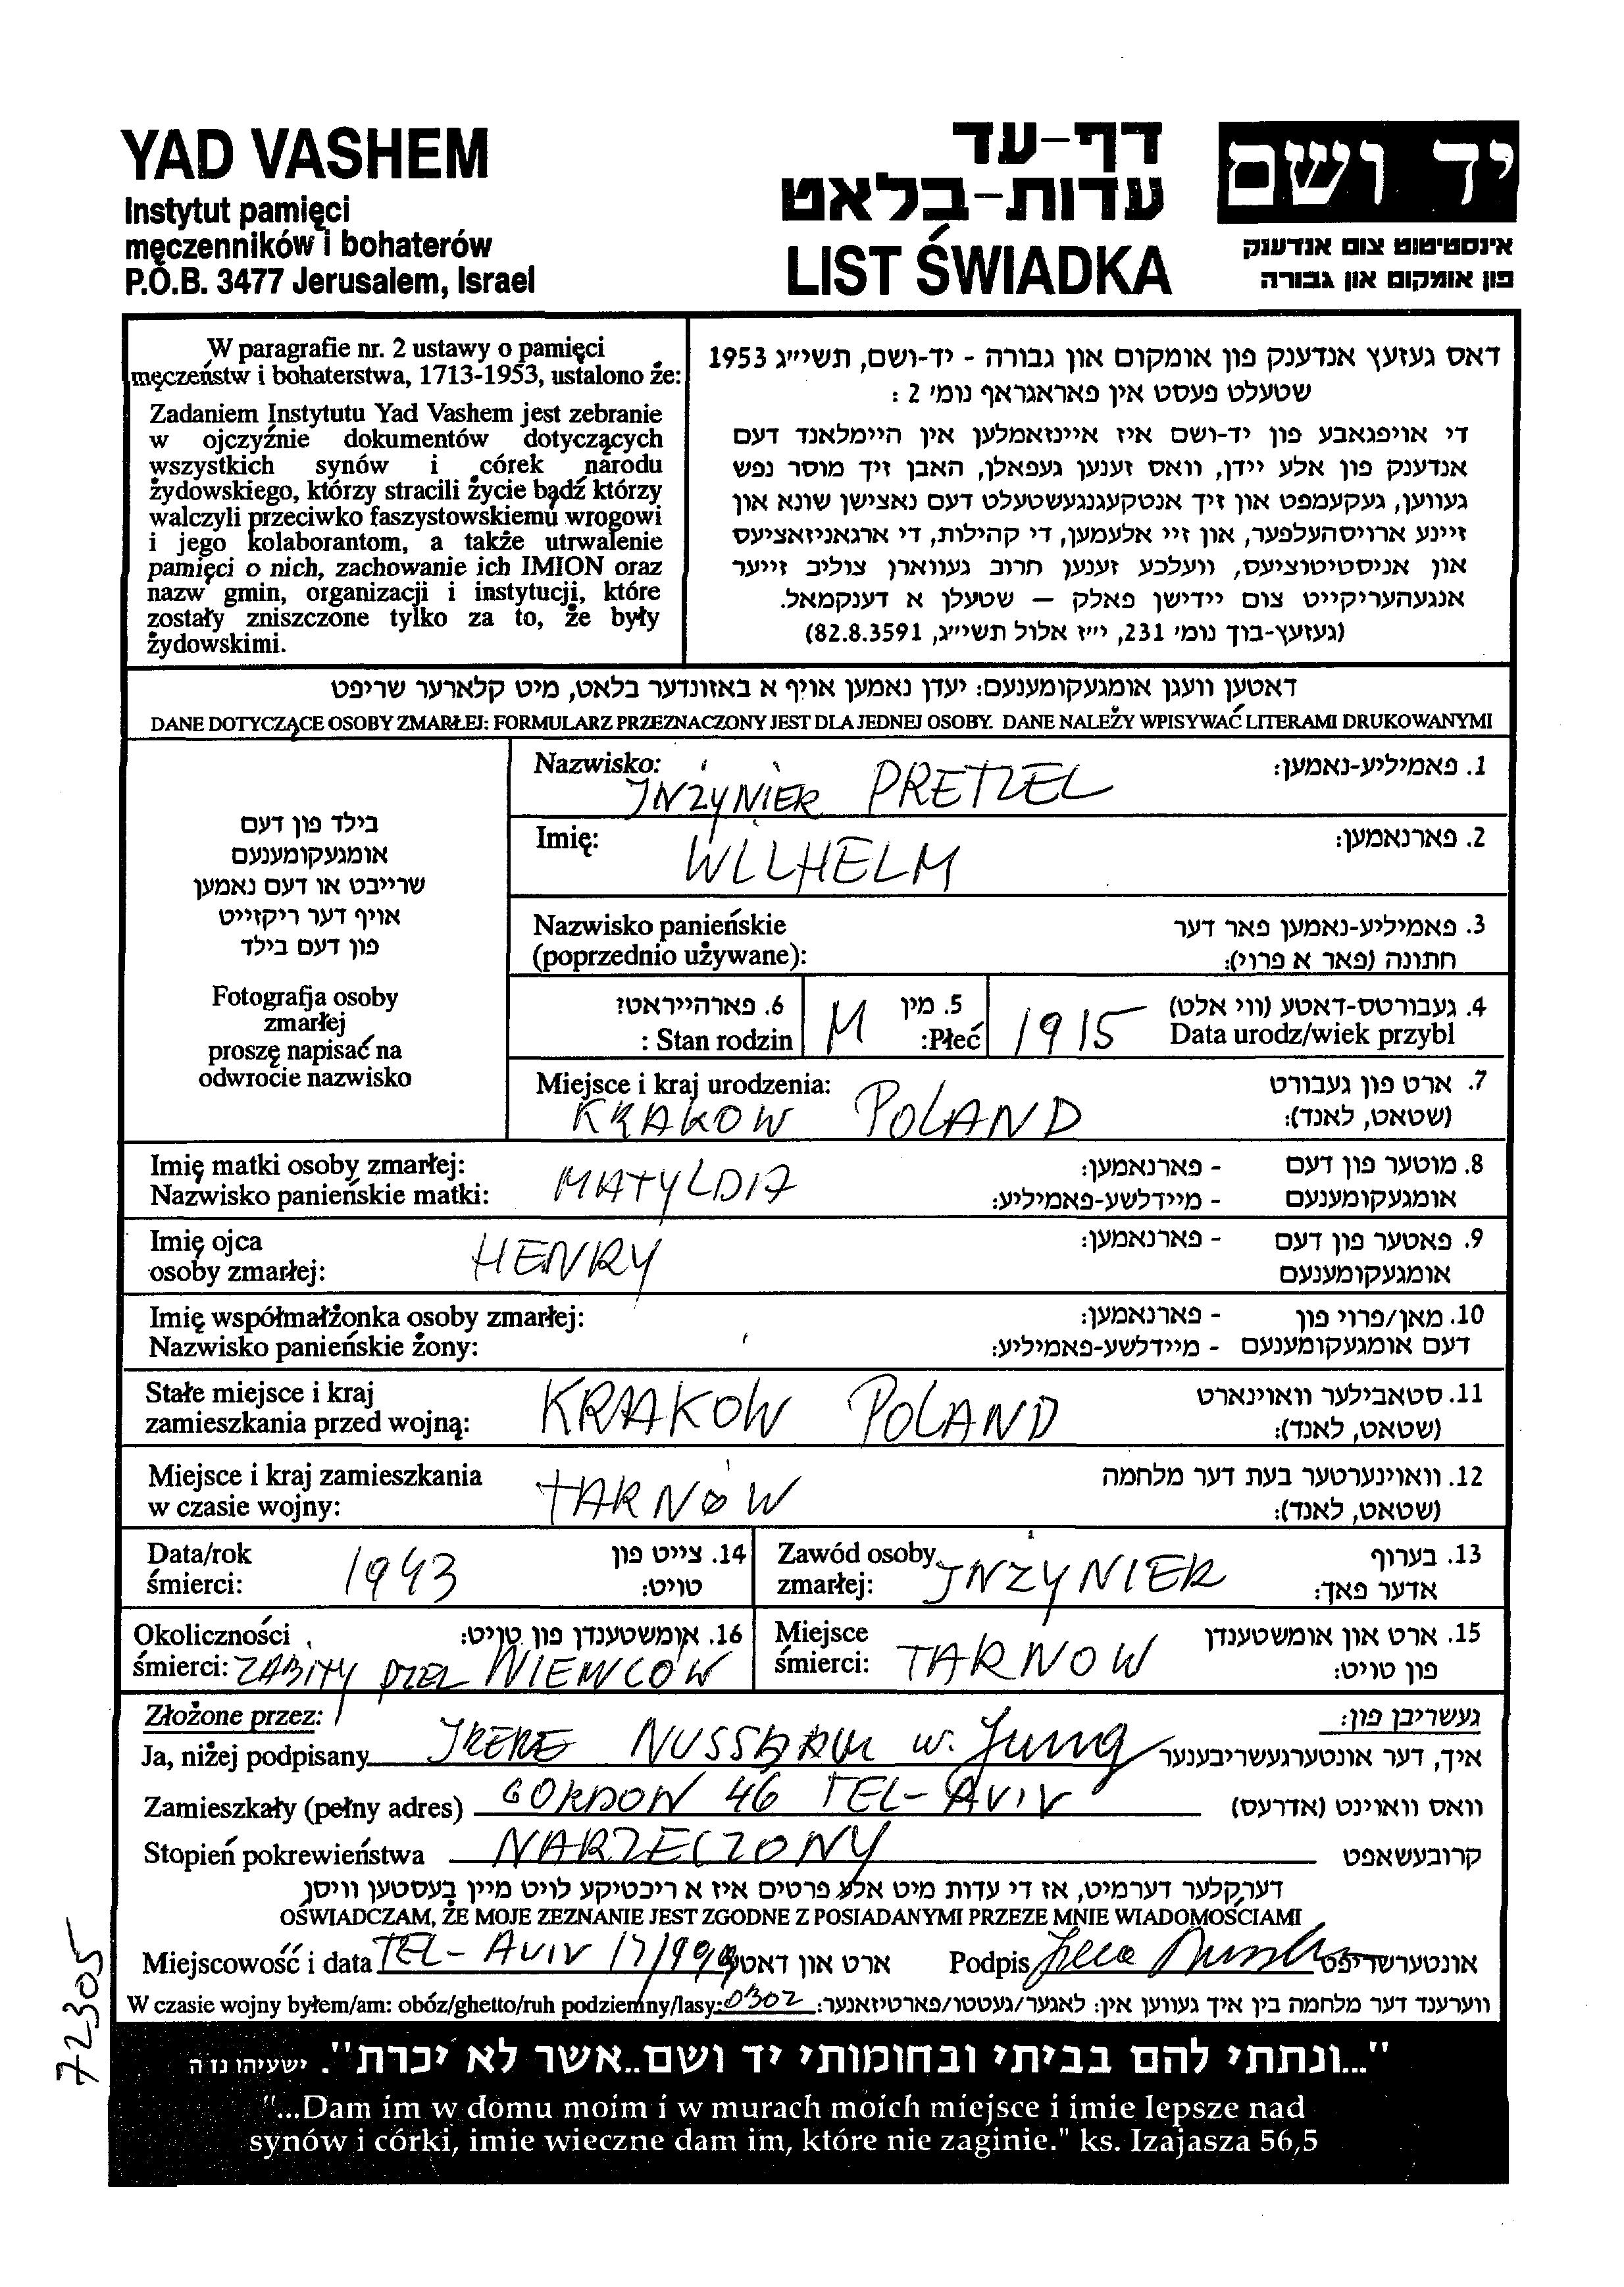 YAD VASHEM
Instytut pamięci
męczenników i bohaterów
P.O.B. 3477 Jerusalem, Israel
דף-עד
עדות-בלאט
LIST ŚWIADKA
יד ושם
אינסטיטוט צום אנדענק
פון אומקום און גבורה
W paragrafie nr. 2 ustawy o pamięci
męczeństw i bohaterstwa, 1713-1953, ustalono że:
Zadaniem Instytutu Yad Vashem jest zebranie
w ojczyźnie dokumentów dotyczących
wszystkich synów i córek narodu
żydowskiego, którzy stracili życie bądź którzy
walczyli przeciwko faszystowskiemu wrogowi
i jego kolaborantom, a także utrwalenie
pamięci o nich, zachowanie ich IMION oraz
nazw gmin, organizacji i instytucji, które
zostały zniszczone tylko za to, że były
żydowskimi.
דאס געזעץ אנדענק פון אומקום און גבורה - יד-ושם, תשי״ג 1953
שטעלט פעסט אין פאראגראף נומ׳ 2 :
די אויפגאבע פון יד-ושם איז איינזאמלען אין היימלאנד דעם
אנדענק פון אלע יידן, וואס זענען געפאלן, האבן זיך מוסר נפש
געווען, געקעמפט און זיך אנטקעגנגעשטעלט דעם נאצישן שונא און
זיינע ארויסהעלפער, און זיי אלעמען, די קהילות, די ארגאניזאציעס
און אניסטיטוציעס, וועלכע זענען חרוב געווארן צוליב זייער
אנגעהעריקייט צום יידישן פאלק – שטעלן א דענקמאל.
(געזעץ-בוך נומ׳ 231, י״ז אלול תשי״ג, 82.8.3591)
דאטען וועגן אומגעקומענעם: יעדן נאמען אויף א באזונדער בלאט, מיט קלארער שריפט
DANE DOTYCZĄCE OSOBY ZMARŁEJ: FORMULARZ PRZEZNACZONY JEST DLA JEDNEJ OSOBY. DANE NALEŻY WPISYWAĆ LITERAMI DRUKOWANYMI
בילד פון דעם
אומגעקומענעם
שרייבט או דעם נאמען
אויף דער ריקזייט
פון דעם בילד
Fotografja osoby
zmarłej
proszę napisać na
odwrocie nazwisko
Nazwisko: INŻYNIER PRETZEL 1. פאמיליע-נאמען:
Imię: WILHELM 2. פארנאמען:
Nazwisko panieńskie 3. פאמיליע-נאמען פאר דער
(poprzednio używane): חתונה (פאר א פרוי):
6. פארהייראט? M 5. מין 1915 4. געבורטס-דאטע (ווי אלט)
: Stan rodzin :Płeć Data urodz/wiek przybl
Miejsce i kraj urodzenia: 7. ארט פון געבורט
KRAKOW POLAND (שטאט, לאנד):
Imię matki osoby zmarłej: MATYLDA - פארנאמען: 8. מוטער פון דעם
Nazwisko panieńskie matki: - מיידלשע-פאמיליע: אומגעקומענעם
Imię ojca HENRY - פארנאמען: 9. פאטער פון דעם
osoby zmarłej: אומגעקומענעם
Imię współmałżonka osoby zmarłej: - פארנאמען: 10. מאן/פרוי פון
Nazwisko panieńskie żony: - מיידלשע-פאמיליע: דעם אומגעקומענעם
Stałe miejsce i kraj KRAKOW POLAND 11. סטאבילער וואוינארט
zamieszkania przed wojną: (שטאט, לאנד):
Miejsce i kraj zamieszkania TARNÓW 12. וואוינערטער בעת דער מלחמה
w czasie wojny: (שטאט, לאנד):
Data/rok 1943 14. צייט פון Zawód osoby INŻYNIER 13. בערוף
śmierci: טויט: zmarłej: אדער פאך:
Okoliczności 16. אומשטענדן פון טויט: Miejsce TARNOW 15. ארט און אומשטענדן
śmierci: ZABITY PZEZ NIEMCÓW śmierci: פון טויט:
Złożone przez: געשריבן פון:
Ja, niżej podpisany IRENE NUSSBAUM w. Jung איך, דער אונטערגעשריבענער
Zamieszkały (pełny adres) GORDON 46 TEL-AVIV וואס וואוינט (אדרעס)
Stopień pokrewieństwa NARZECZONY קרובעשאפט
דערקלער דערמיט, אז די עדות מיט אלע פרטים איז א ריכטיקע לויט מיין בעסטען וויסן
OŚWIADCZAM, ŻE MOJE ZEZNANIE JEST ZGODNE Z POSIADANYMI PRZEZE MNIE WIADOMOŚCIAMI
Miejscowość i data TEL-AVIV ארט און דאטע Podpis אונטערשריפט
W czasie wojny byłem/am: obóz/ghetto/ruh podziemny/lasy: OBOZ ווערענד דער מלחמה בין איך געווען אין: לאגער/געטטו/פארטיזאנער:
72305
"...ונתתי להם בביתי ובחומותי יד ושם..אשר לא יכרת". ישעיהו נו ה
"...Dam im w domu moim i w murach moich miejsce i imie lepsze nad
synów i córki, imie wieczne dam im, które nie zaginie." ks. Izajasza 56,5